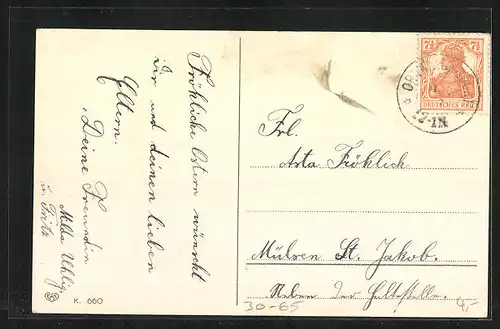 Fröhliche Ostern wünscht
dir und deinen lieben
Eltern.
Deine Freundin
Milda Uhlig
u. Fritz
K. 660
7½ 7½
DEUTSCHES REICH
Frl.
Asta Fröhlich
Mülsen St. Jakob.
Neben der Haltestelle.
30-65